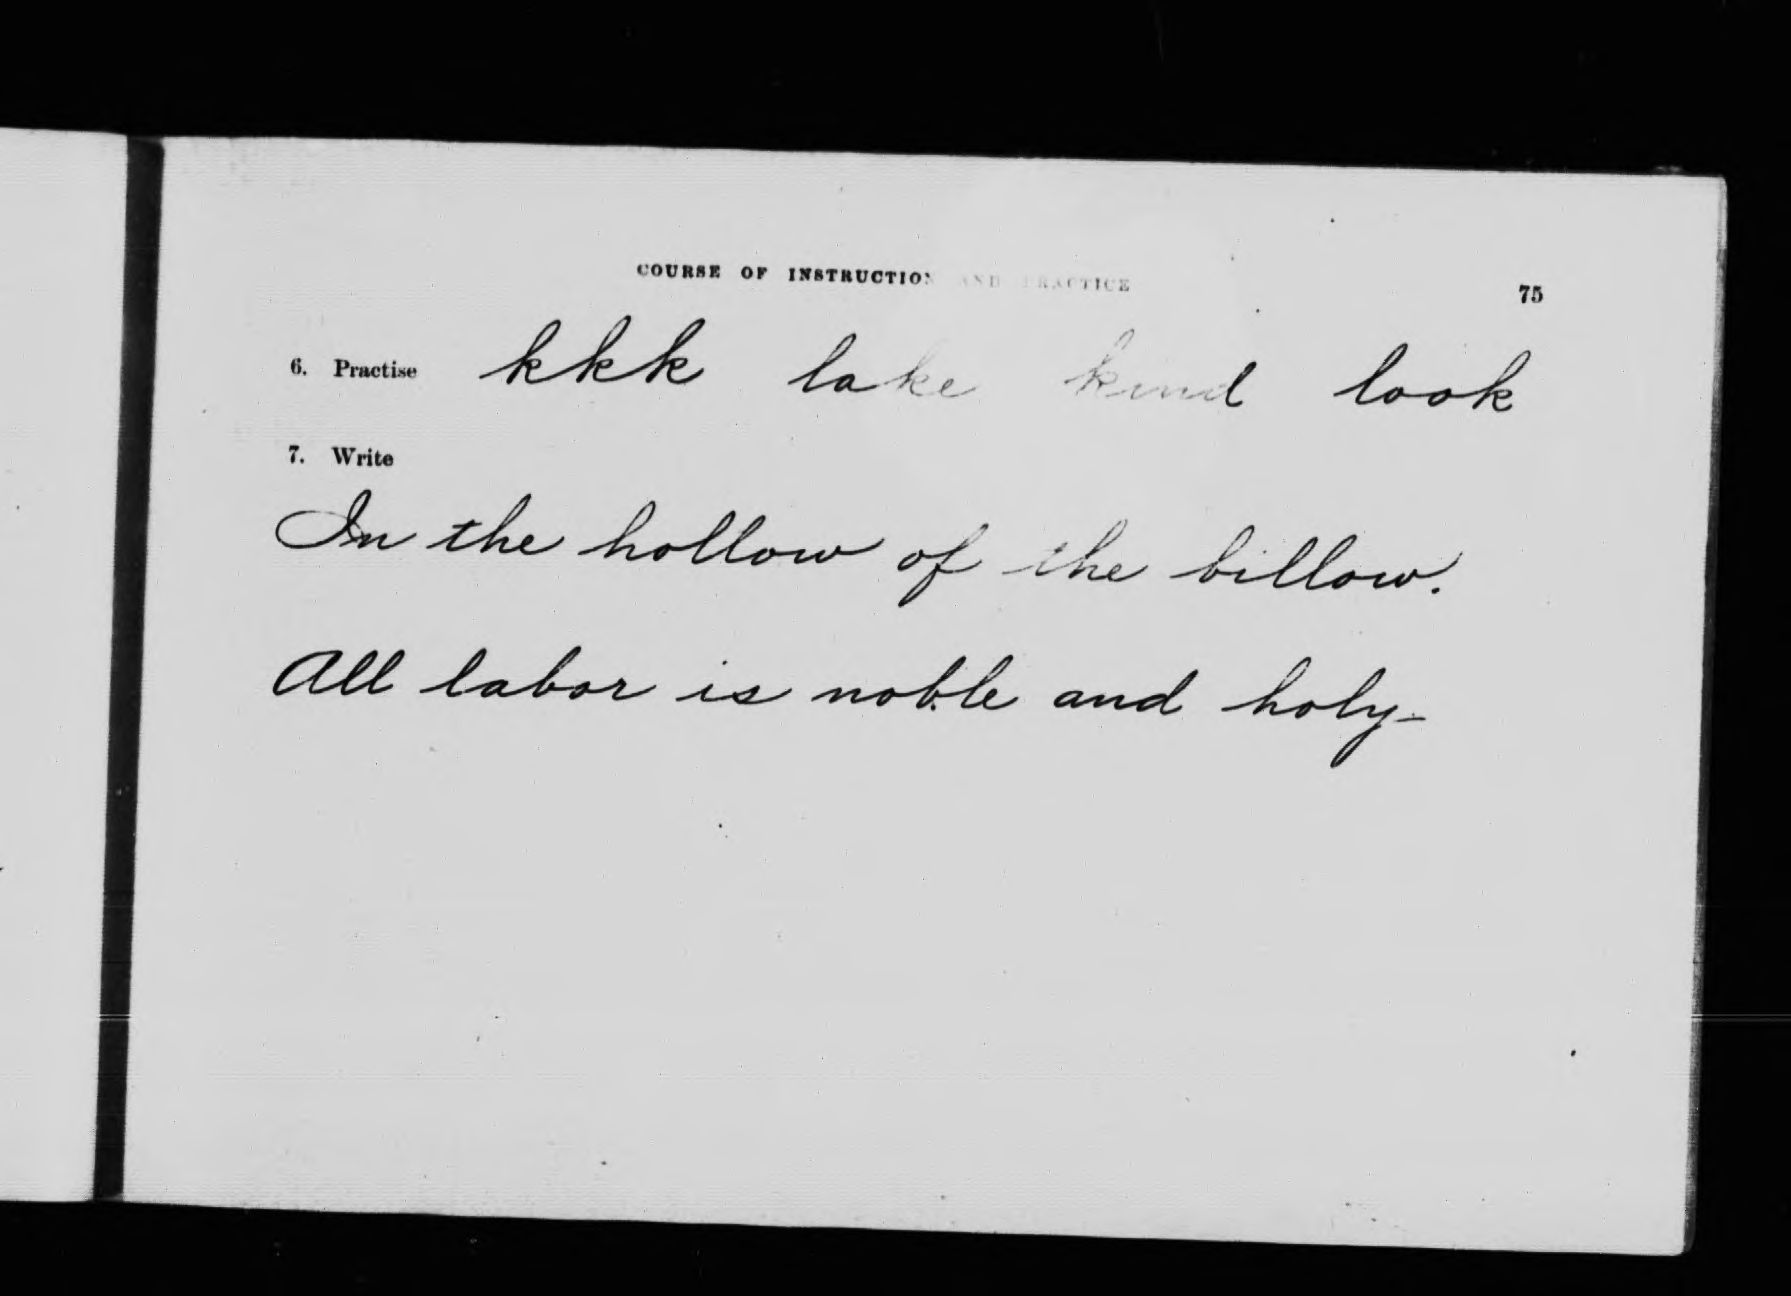 COURSE OF INSTRUCTION AND PRACTICE 75
6. Practise kkk lake kind look
7. Write
In the hollow of the billow.
All labor is noble and holy-